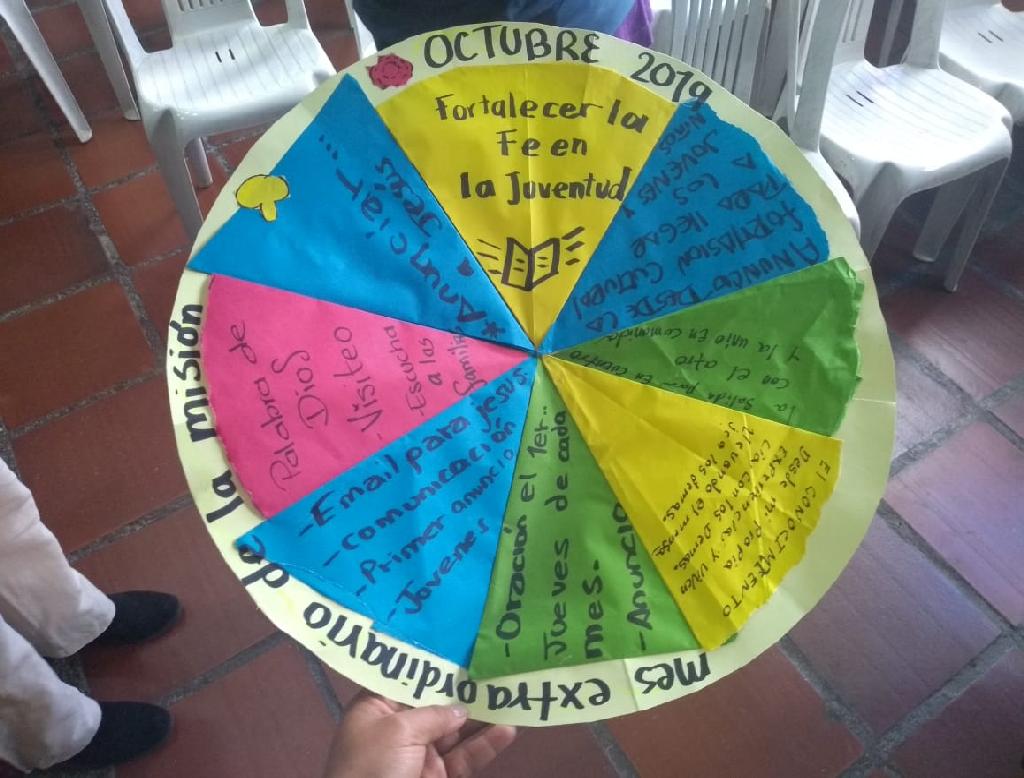 OCTUBRE 2019
mes extraordinario de la misión
Fortalecer la
Fe en
la Juventud
ANUNCIO DESDE LA
FORMASION CULTURAL
PARA LLEGAR
A LOS
JOVENES Y
NIÑOS
la Salida Para En cuentro
con el otro
Y la unio En comunida
El CONOCIMIENTO
Desde mi propia
EXPERIENCIAS Y viven
cia Con los Demas
llevando el mensa
je a los demas
-Oración el 1er..
Jueves de cada
mes.
-Anuncio
-Email para Jesus
-Comunicación
-Primer anuncio
-Jovenes
Palabra de
Dios
-Visiteo
-Escucha
a las
familia
*Anunciar....
a Jesús